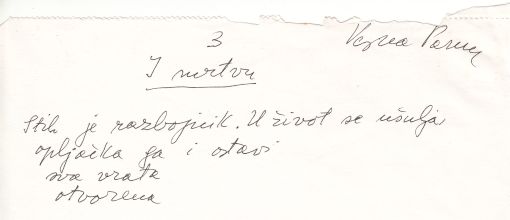 3 Vesna Parun
I mrtvu
Stih je razbojnik. U život se ušulja
opljačka ga i ostavi
sva vrata
otvorena